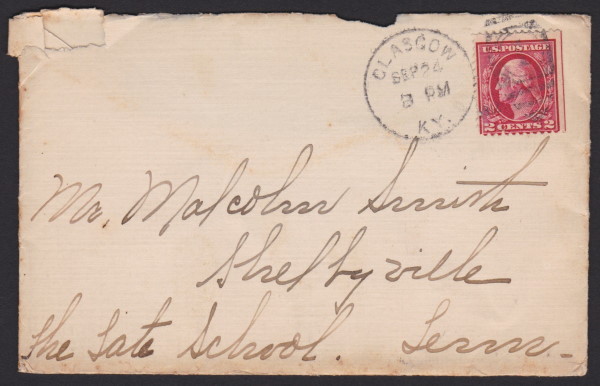 GLASGOW
SEP 24
PM
KY.
U.S. POSTAGE
2 CENTS 2
Mr. Malcolm Smith
Shelbyville
The Tate School. Tenn-